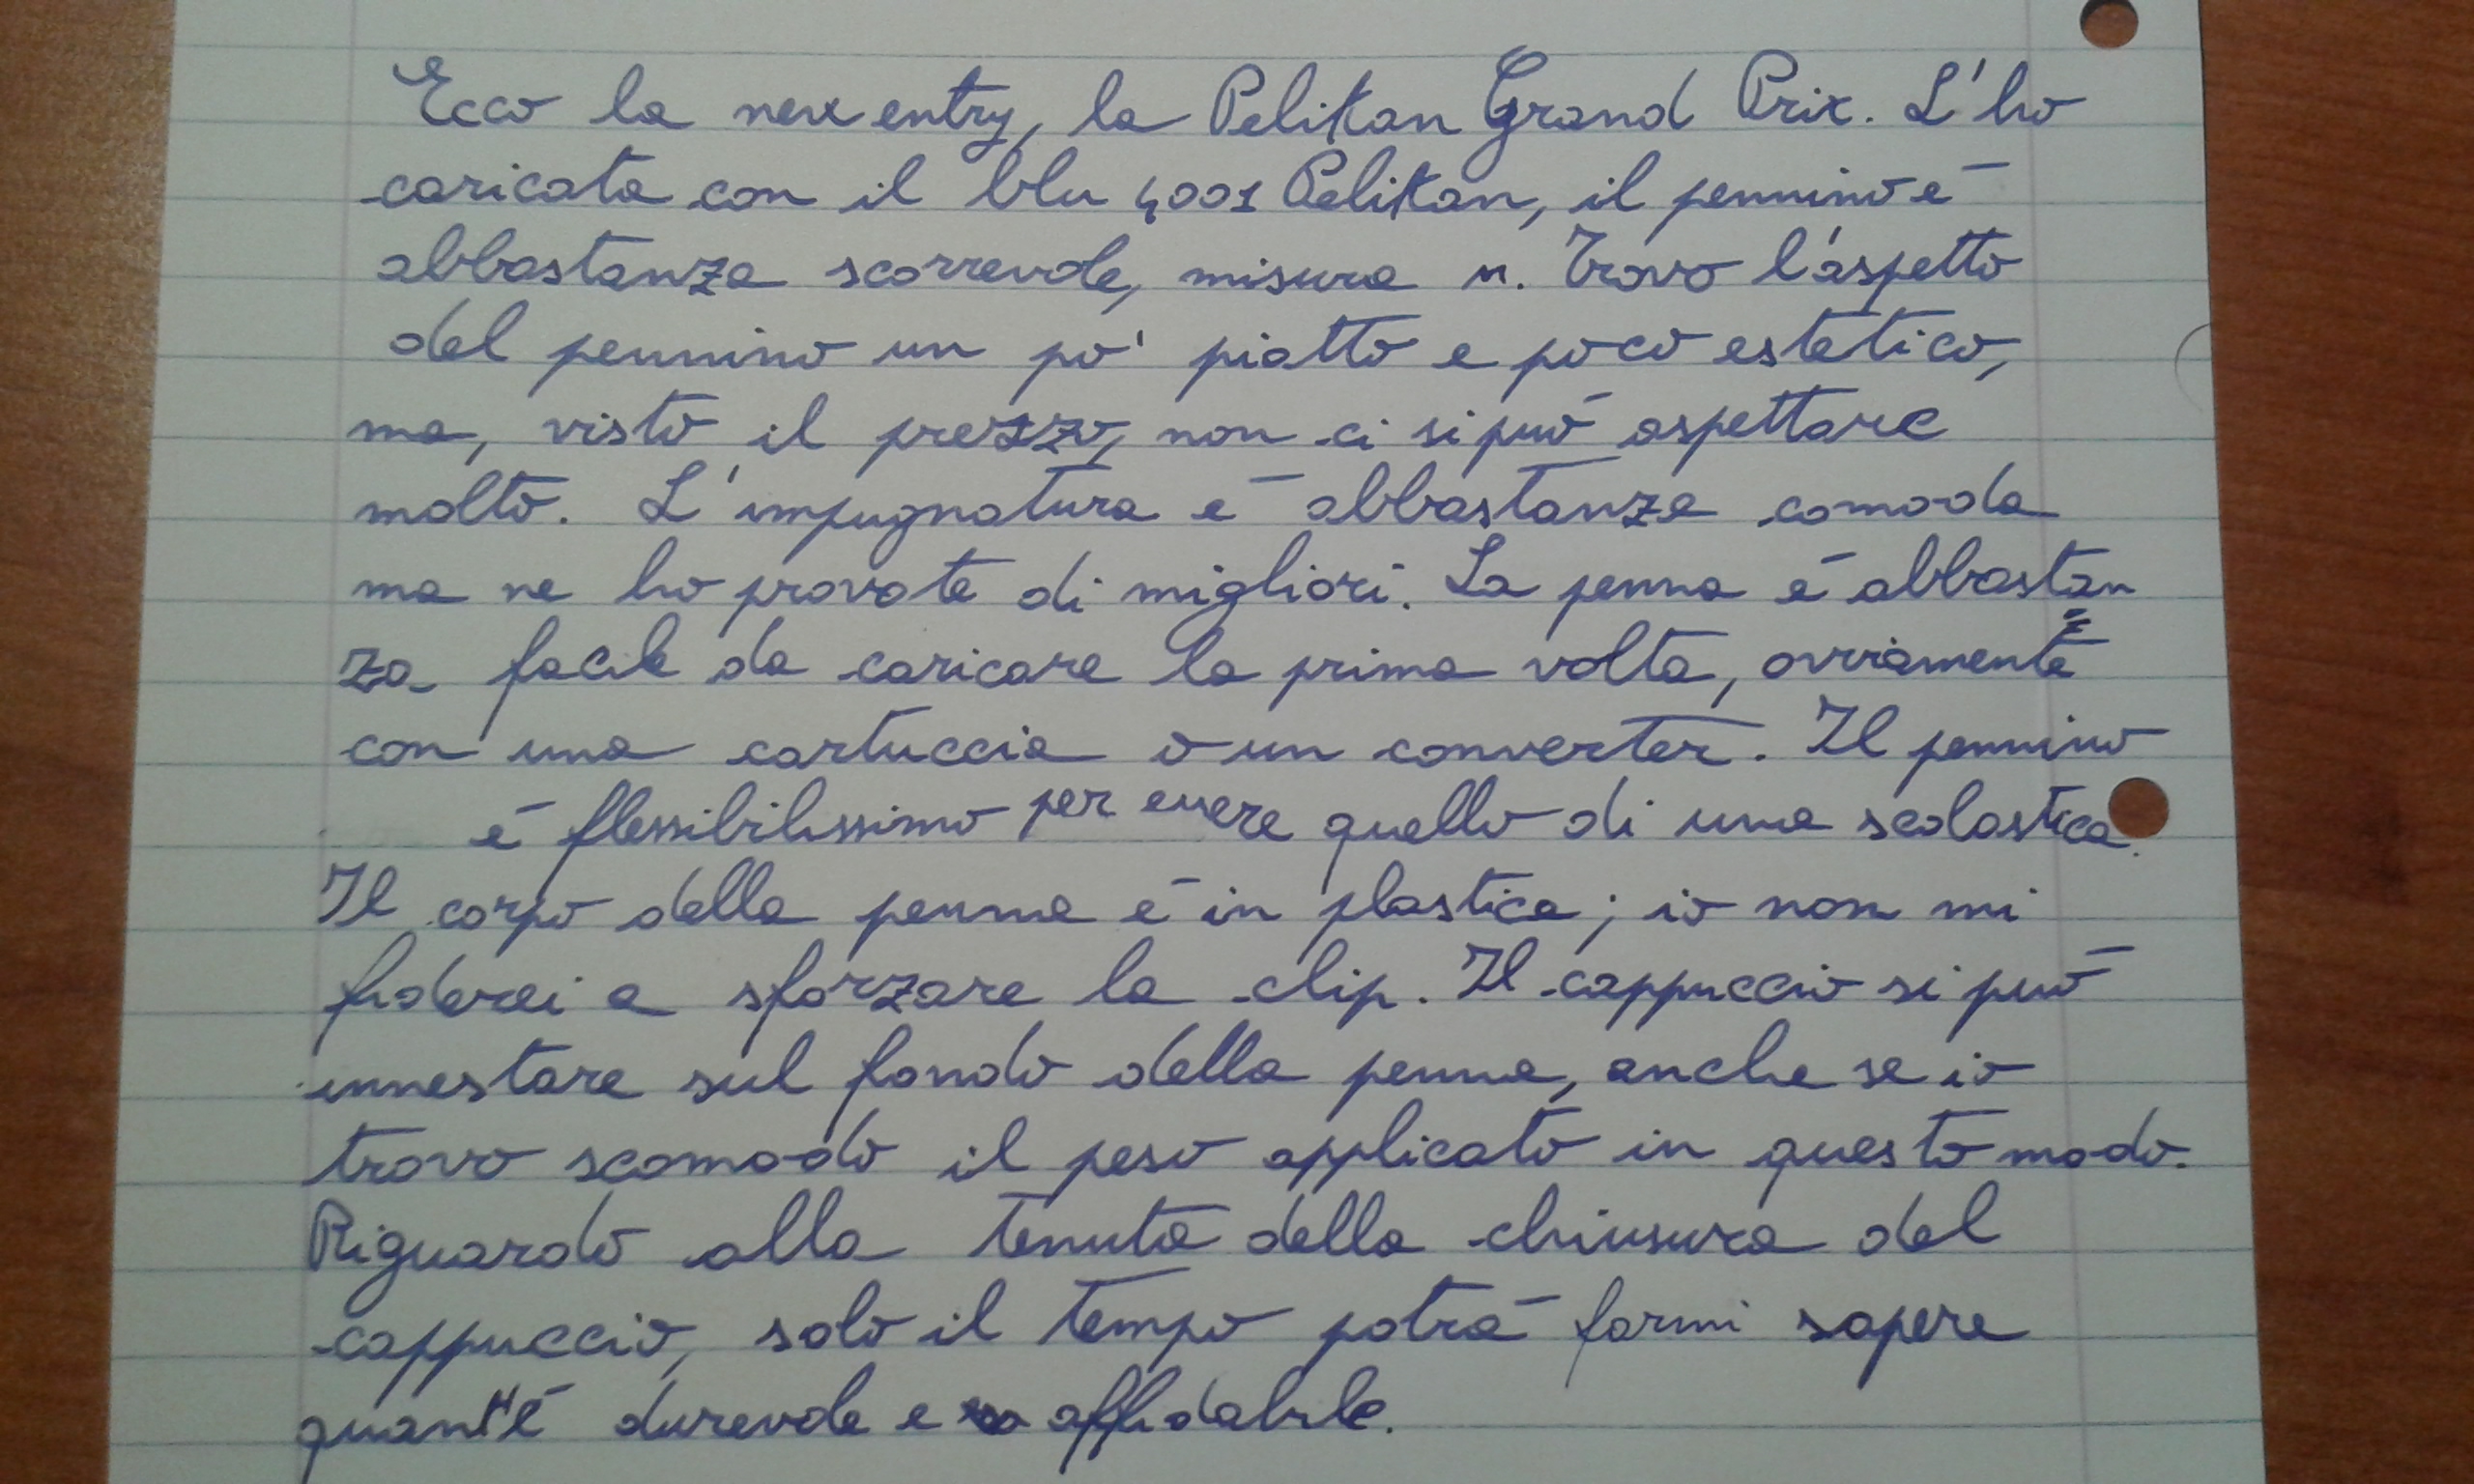 Ecco la new entry, la Pelikan Grand Prix. L'ho
caricata con il blu 4001 Pelikan, il pennino è
abbastanza scorrevole, misura M. Trovo l'aspetto
del pennino un po' piatto e poco estetico,
ma, visto il prezzo, non ci si può aspettare
molto. L'impugnatura è abbastanza comoda
ma ne ho provate di migliori. La penna è abbastan
za facile da caricare la prima volta, ovviamente
con una cartuccia o un converter. Il pennino
è flessibilissimo per essere quello di una scolastica.
Il corpo della penna è in plastica; io non mi
fiderei a sforzare la clip. Il cappuccio si può
innestare sul fondo della penna, anche se io
trovo scomodo il peso applicato in questo modo.
Riguardo alla tenuta della chiusura del
cappuccio, solo il tempo potrà farmi sapere
quant'è durevole e affidabile.